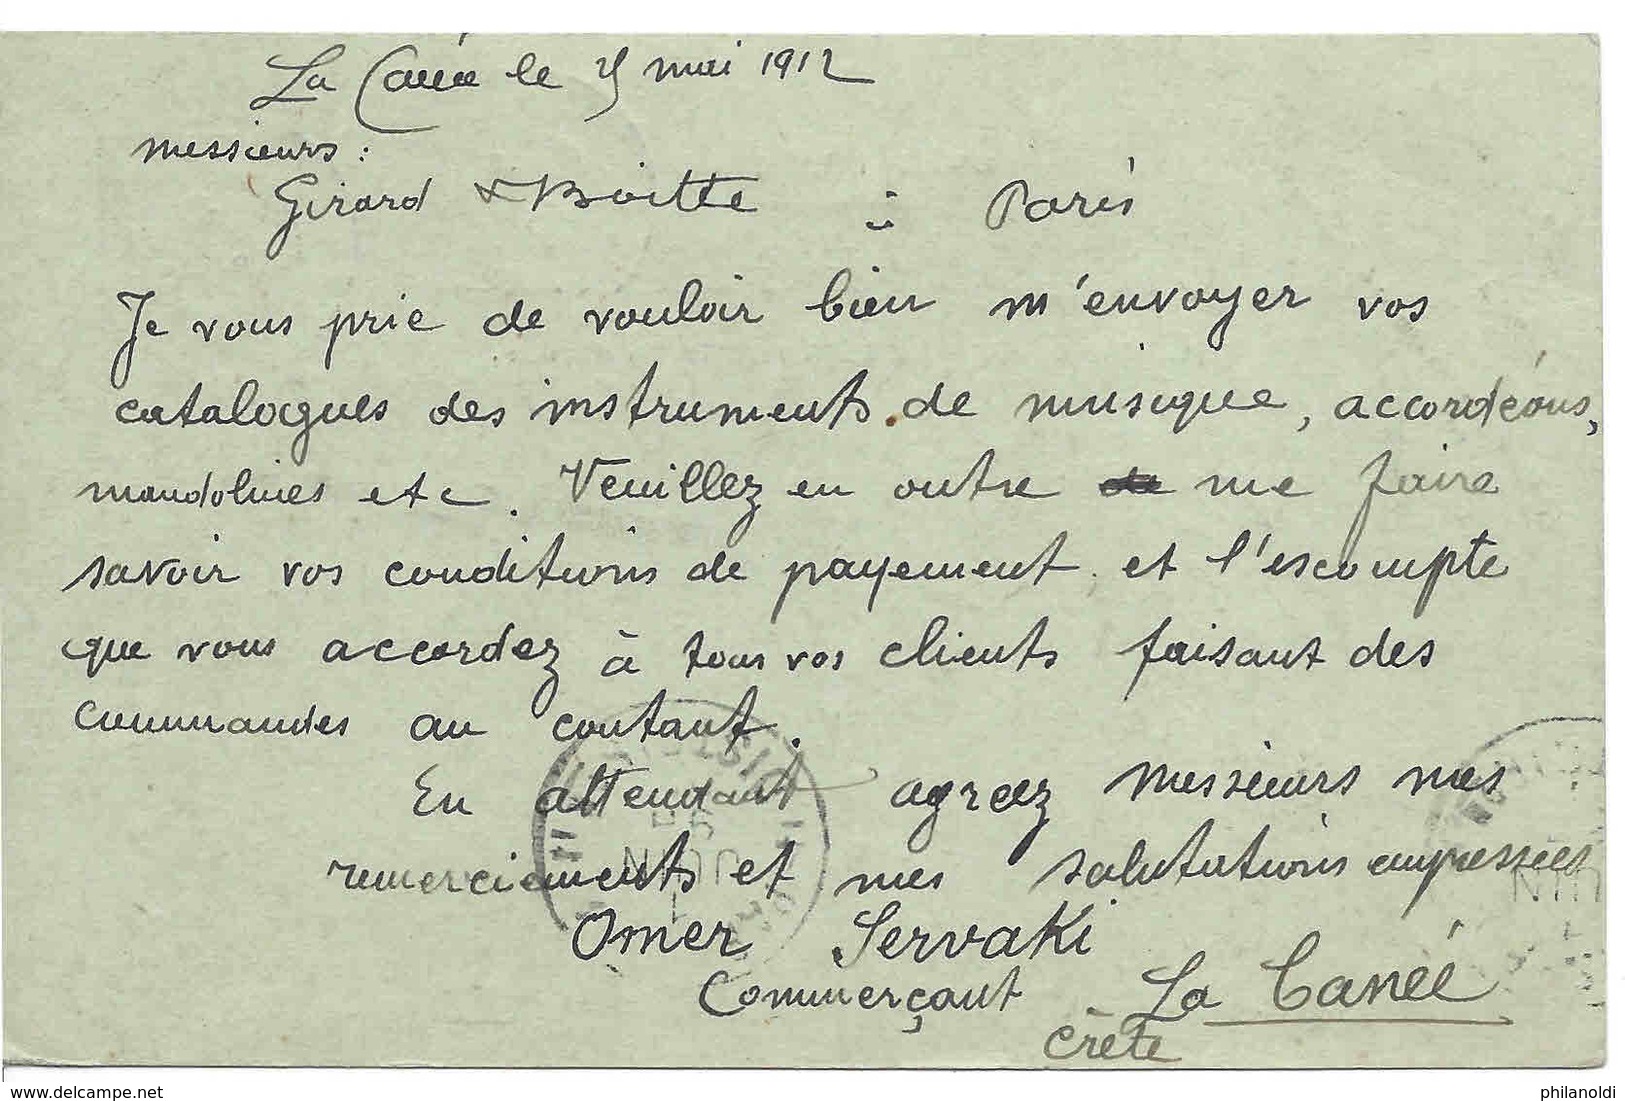 La Canée le 25 mai 1912
messieurs :
Girard & Boitte à Paris
Je vous prie de vouloir bien m'envoyer vos
catalogues des instruments de musique, accordéons,
mandolines etc. Veuillez en outre me faire
savoir vos conditions de payement et l'escompte
que vous accordez à tous vos clients faisant des
commandes au contant.
En attendant agreez Messieurs mes
remerciements et mes salutations empressées
Omer Servaki
Commerçant La Canée
Crète
delcampe.net
philanoldi